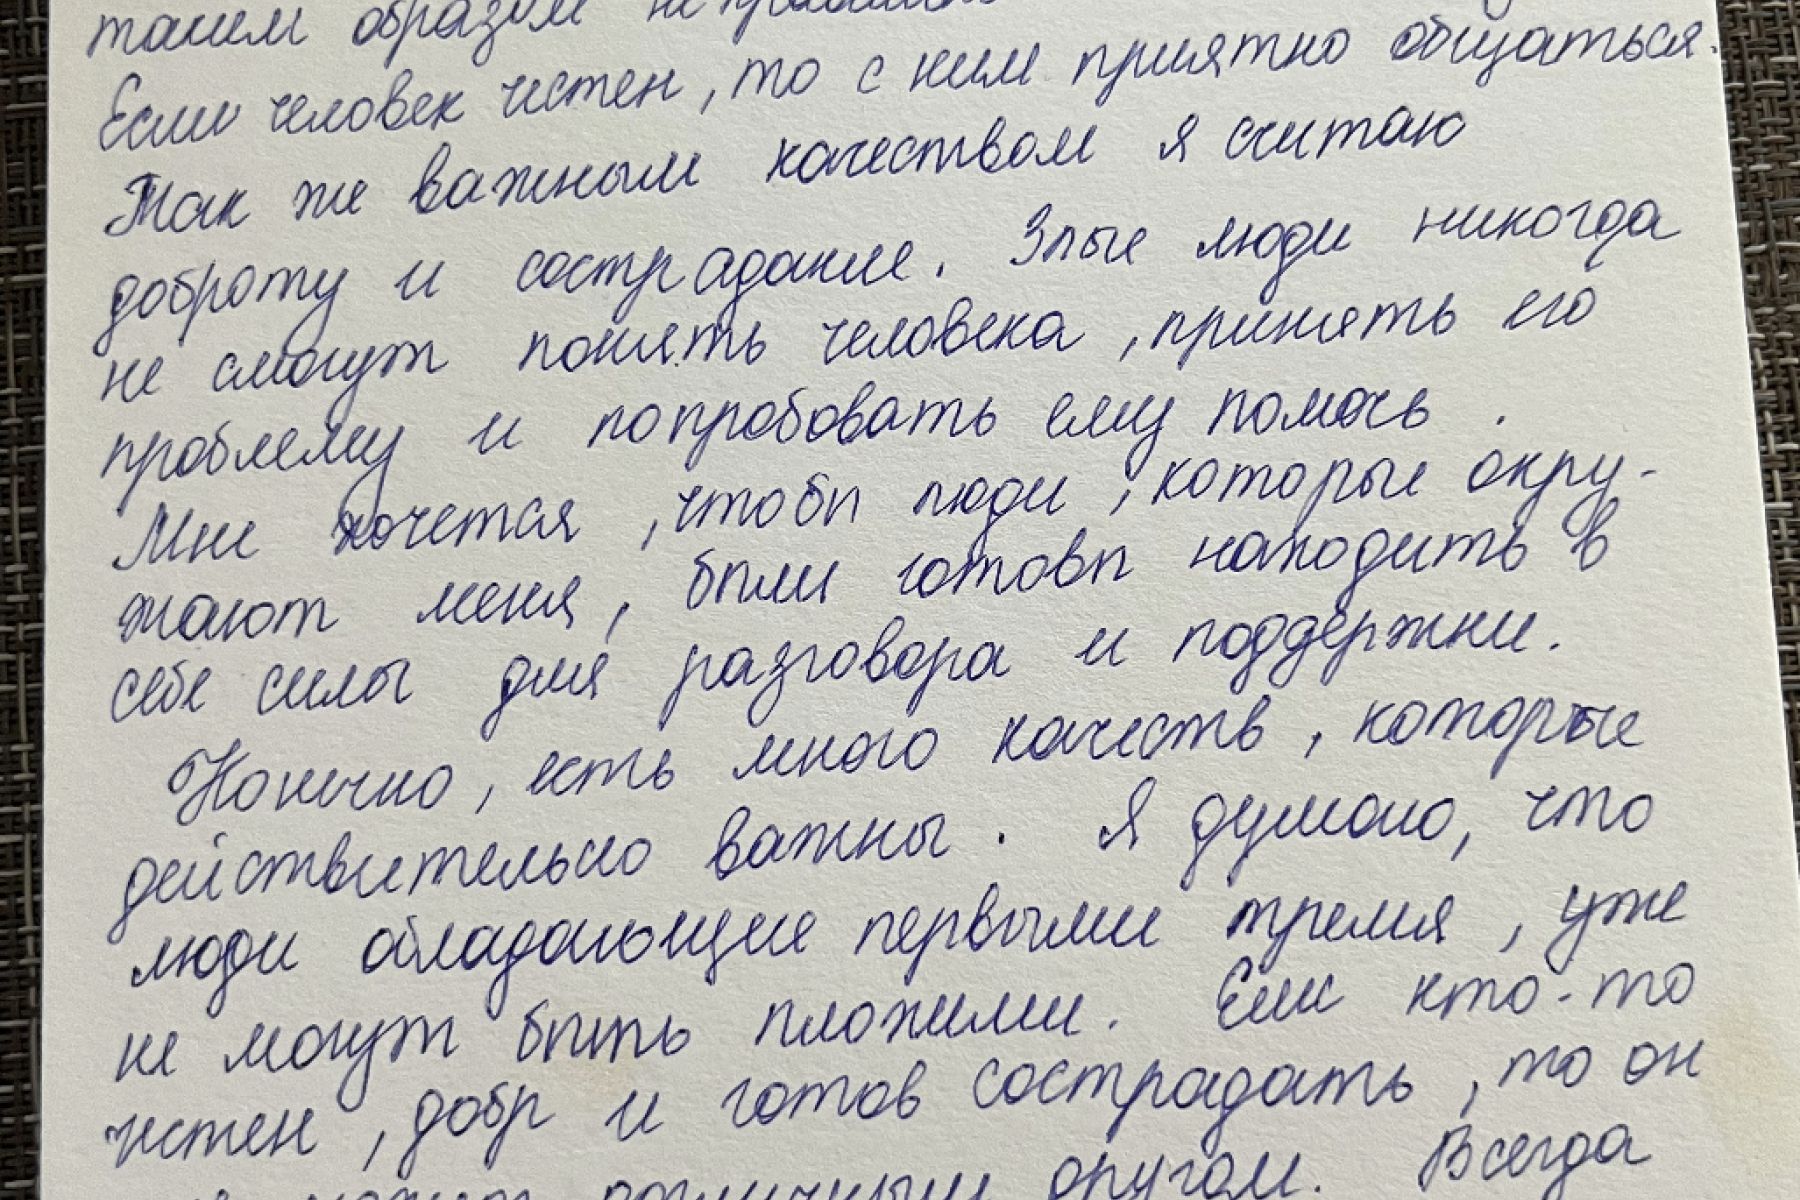 таким образом
Если человек честен, то с ним приятно общаться.
Так же важным качеством я считаю
доброту и сострадание. Злые люди никогда
не смогут понять человека, принять его
проблему и попробовать ему помочь.
Мне хочется, чтобы люди, которые окру-
жают меня, были готовы находить в
себе силы для разговора и поддержки.
Конечно, есть много качеств, которые
действительно важны. Я думаю, что
люди обладающие первыми тремя, уже
не могут быть плохими. Если кто-то
честен, добр и готов сострадать, то он
отличным другом. Всегда